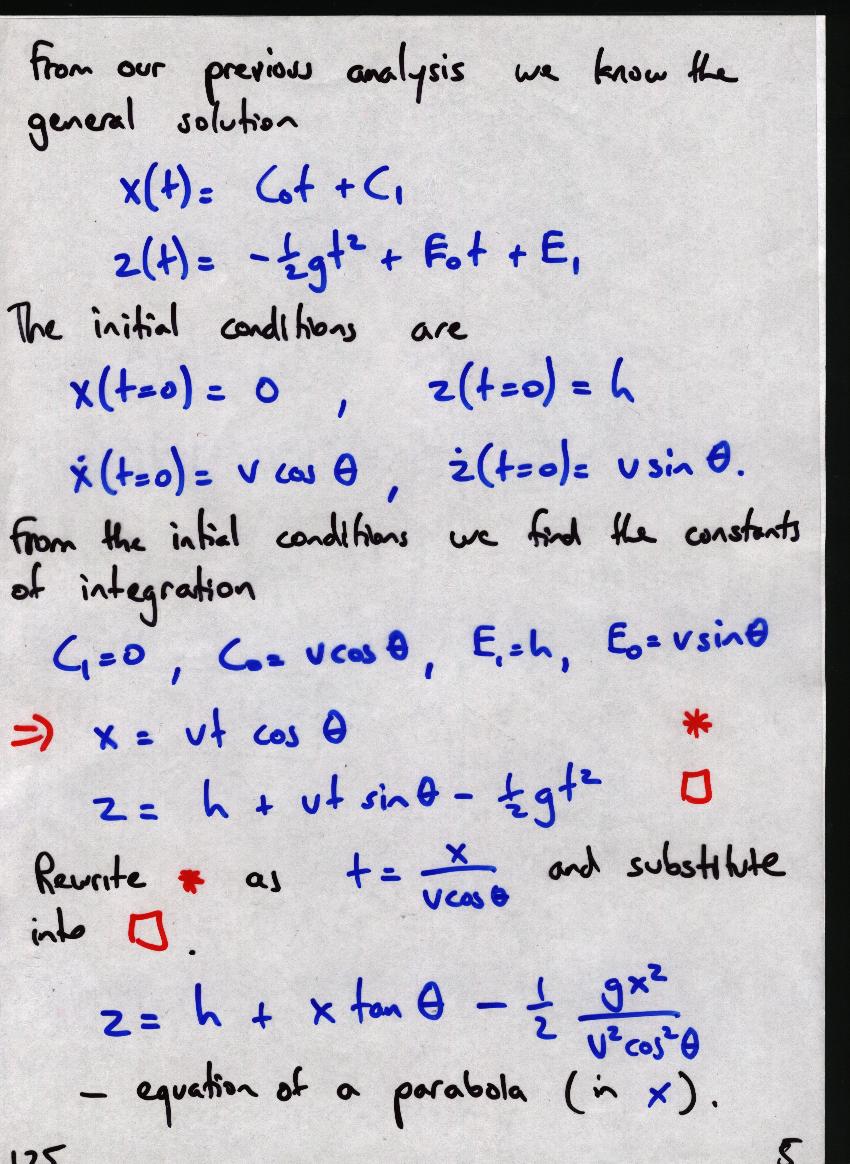 From our previous analysis we know the
general solution
x(t) = C₀t + C₁
z(t) = -½gt² + E₀t + E₁
The initial conditions are
x(t=0) = 0 , z(t=0) = h
ẋ(t=0) = v cos θ , ż(t=0) = v sin θ.
From the intial conditions we find the constants
of integration
C₁=0 , C₀= vcos θ , E₁=h, E₀= vsinθ
⇒ x = vt cos θ *
z = h + vt sin θ - ½gt² □
Rewrite * as t = x/(vcosθ) and substitute
into □ .
z = h + x tan θ - ½ gx²/(v²cos²θ)
- equation of a parabola (in x).
125 5